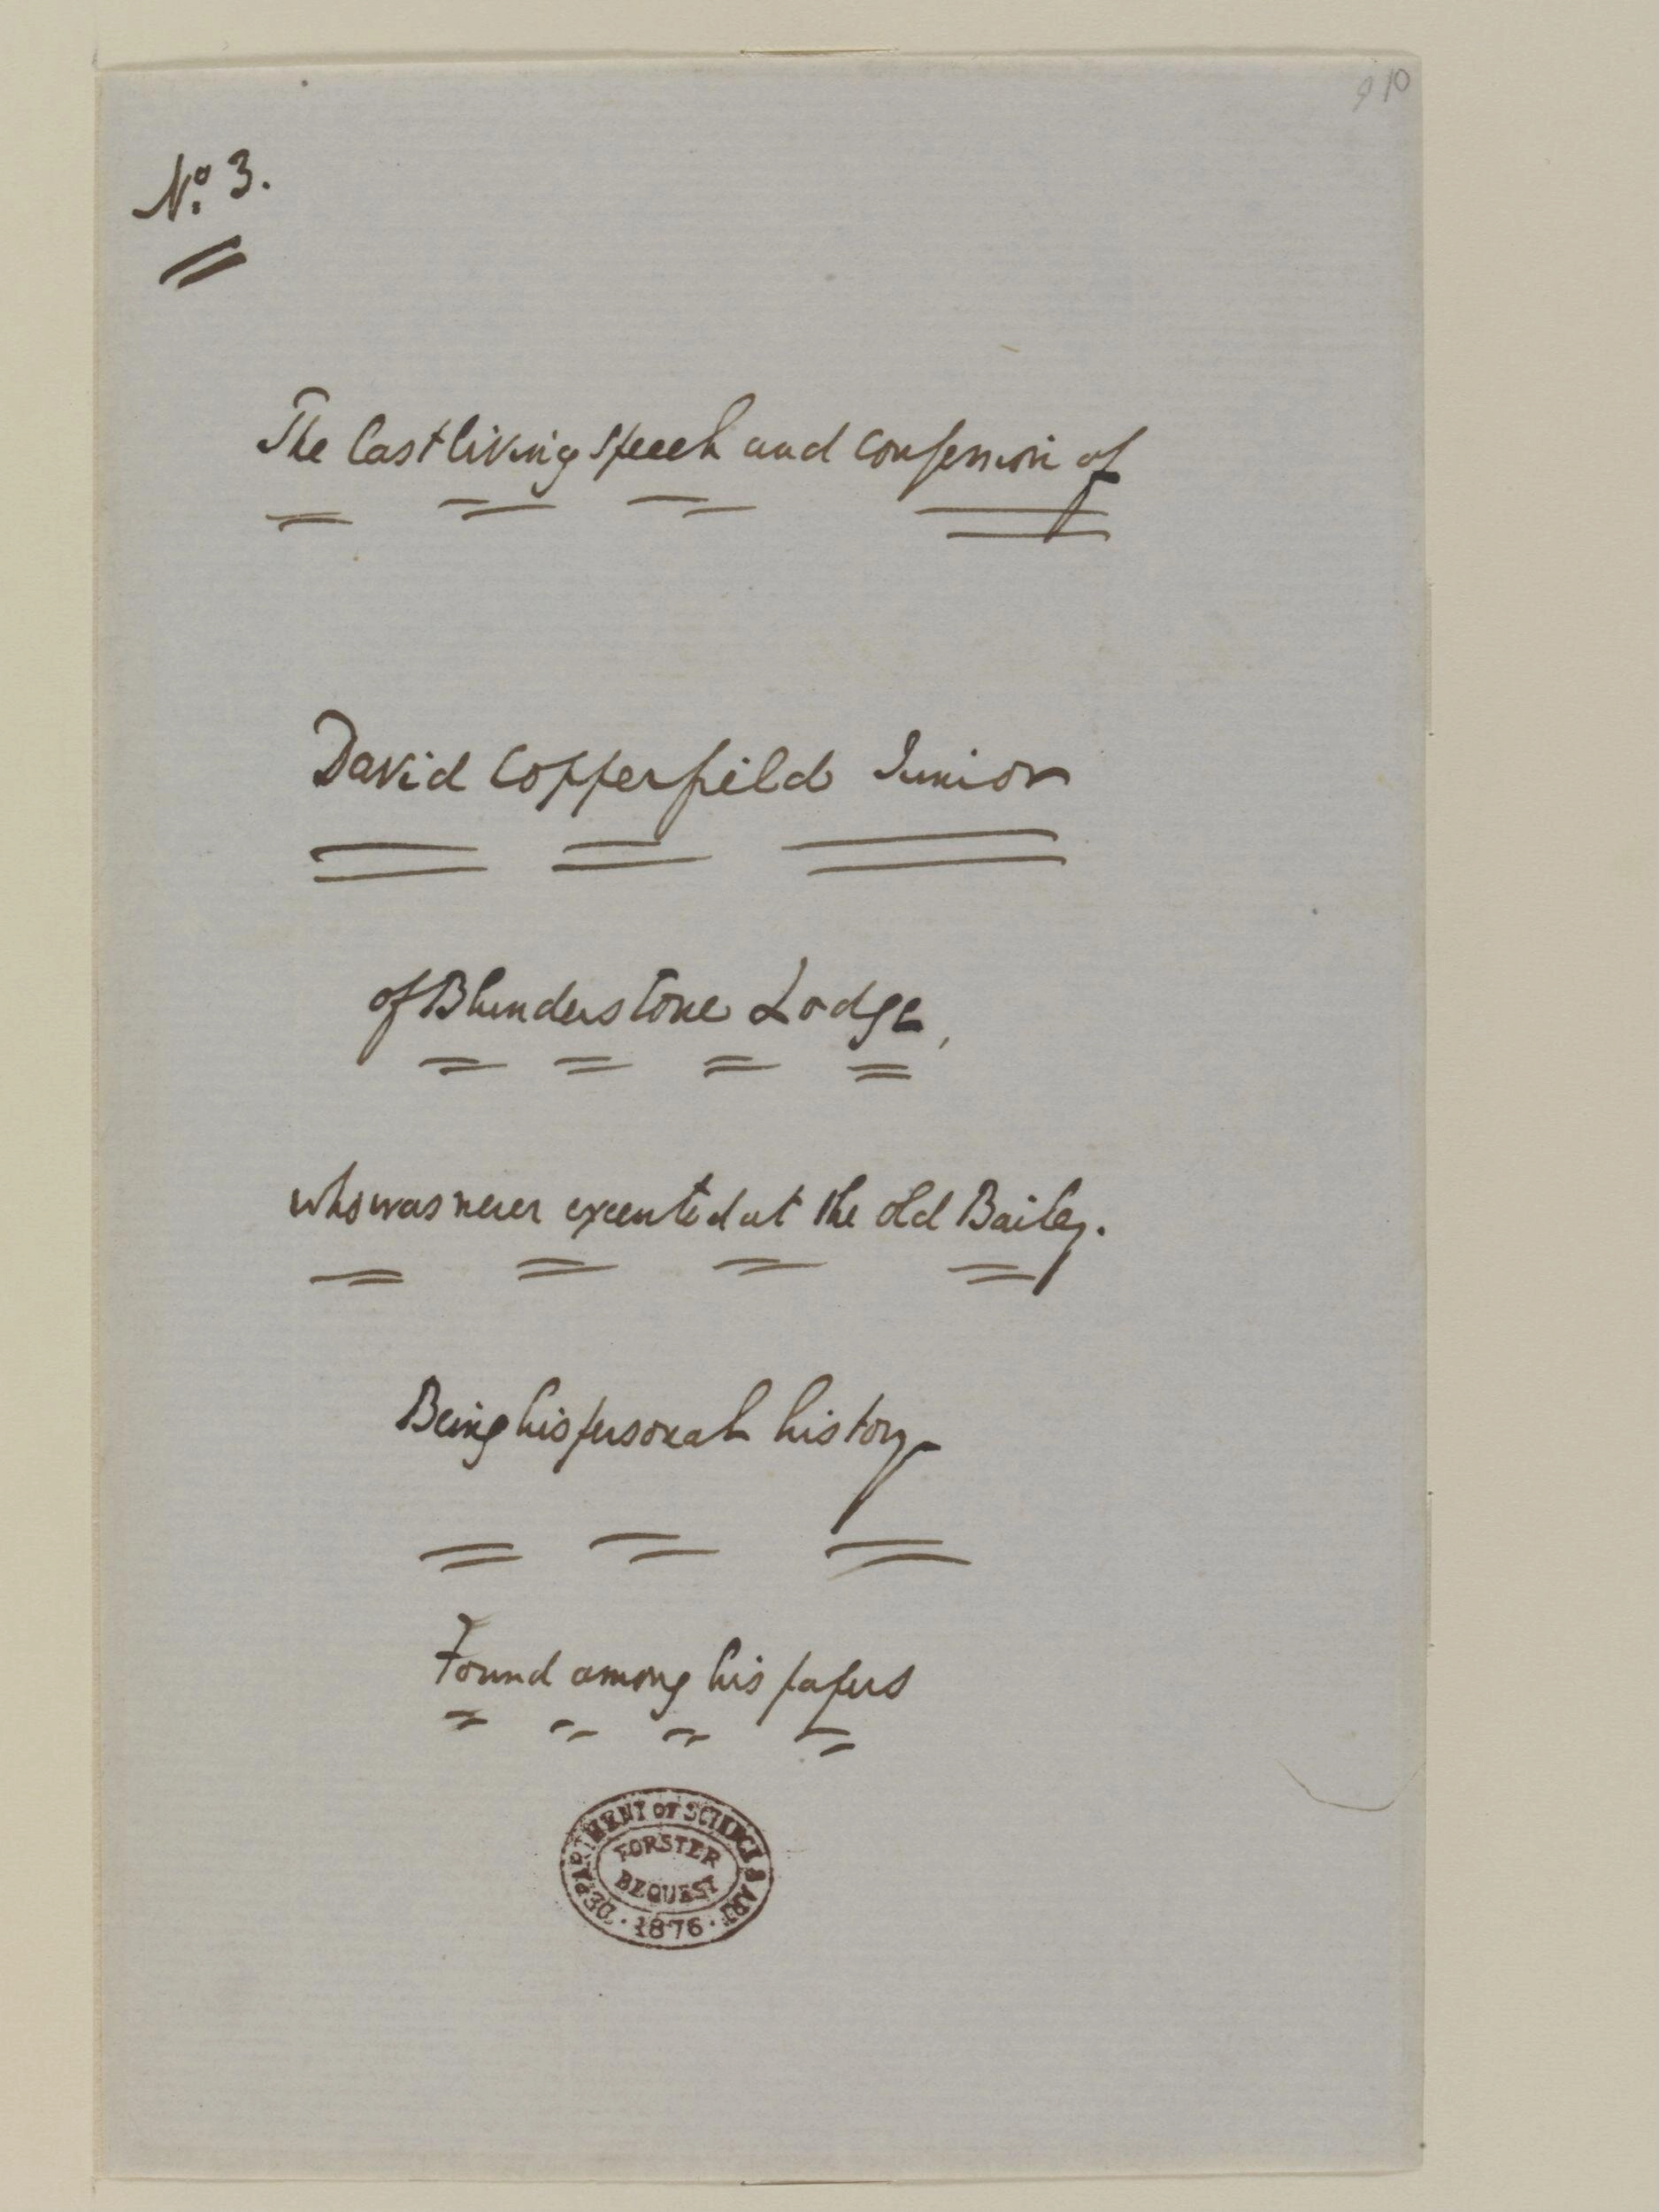 910
No. 3.
The last living speech and confession of
David Copperfield Junior
of Blunderstone Lodge,
who was never executed at the Old Bailey.
Being his personal history
Found among his papers
DEPARTMENT OF SCIENCE & ART
FORSTER
BEQUEST
1876